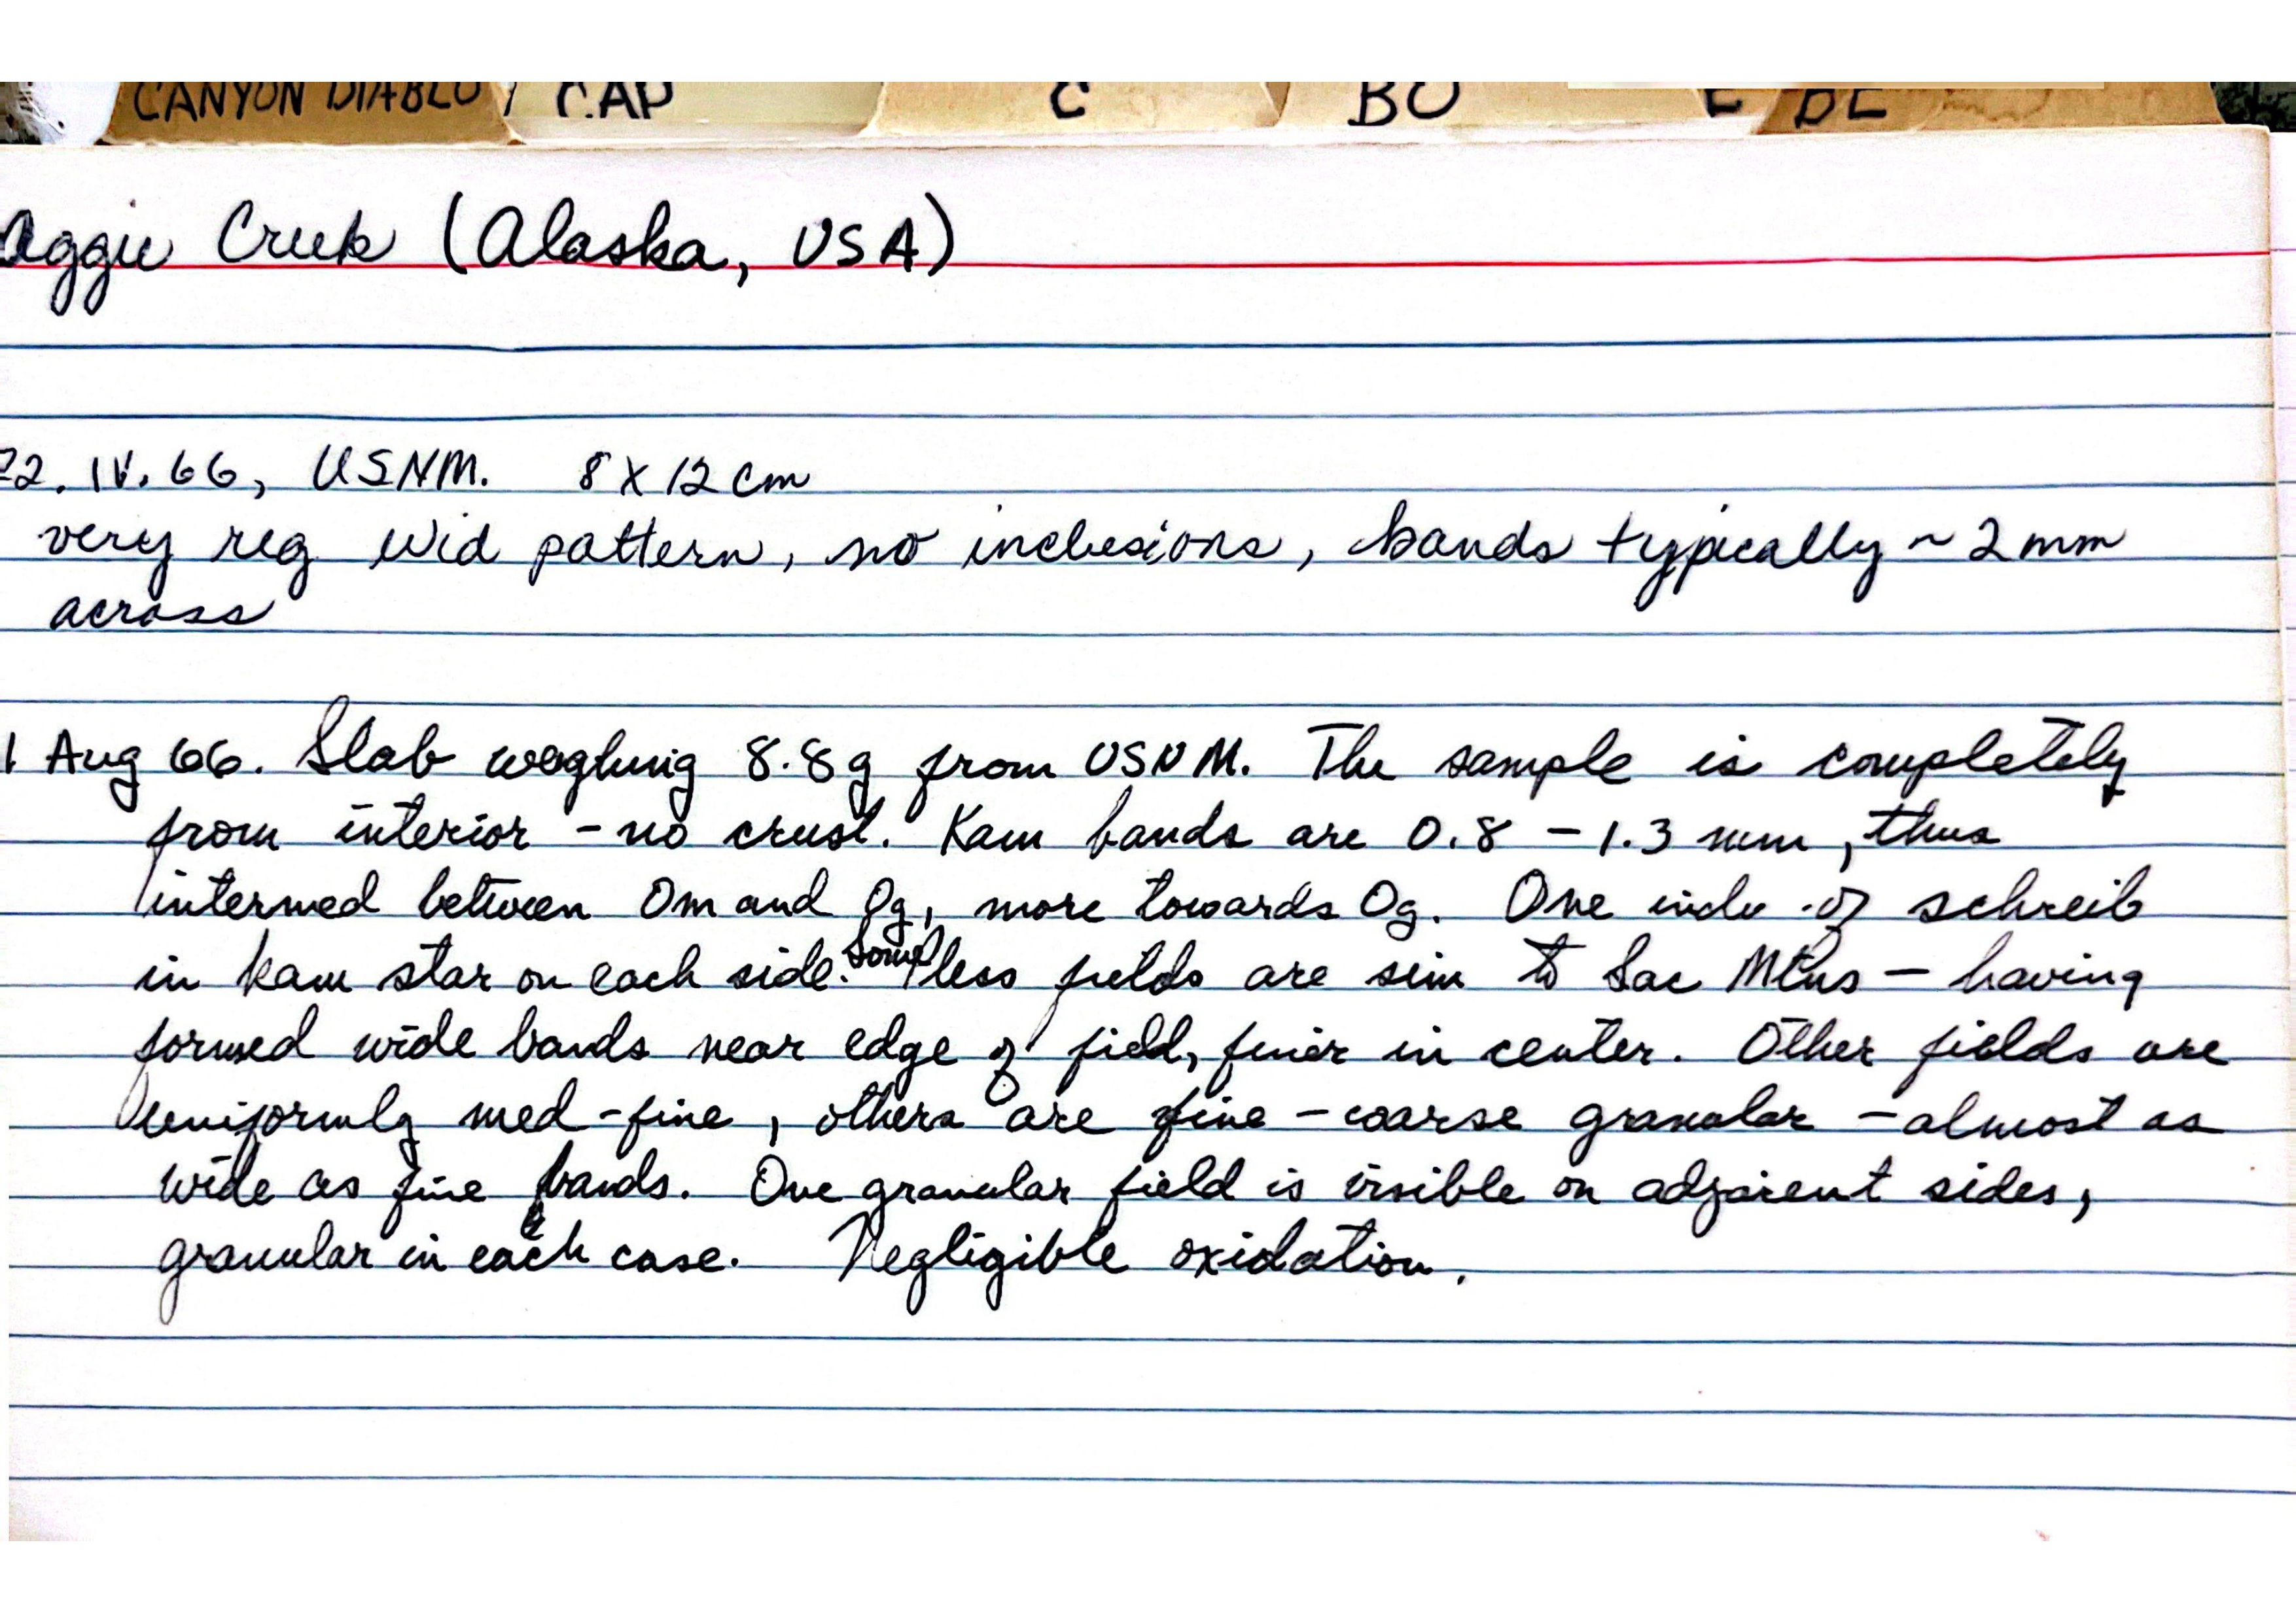 CANYON DIABLO CAP C BO BE
Aggie Creek (Alaska, USA)
22. IV. 66, USNM. 8 X 12 cm
very reg Wid pattern, no inclusions, bands typically ~ 2 mm
across
1 Aug 66. Slab weghing 8.8 g from USNM. The sample is completely
from interior - no crust. Kam bands are 0.8 - 1.3 mm, thus
intermed between Om and Og, more towards Og. One inclu of schreib
in kam star on each side. Some pless fields are sim to Sac Mtns - having
formed wide bands near edge of field, finer in center. Other fields are
uniformly med-fine, others are fine - coarse granular - almost as
wide as fine bands. One granular field is visible on adjacent sides,
granular in each case. Negligible oxidation.